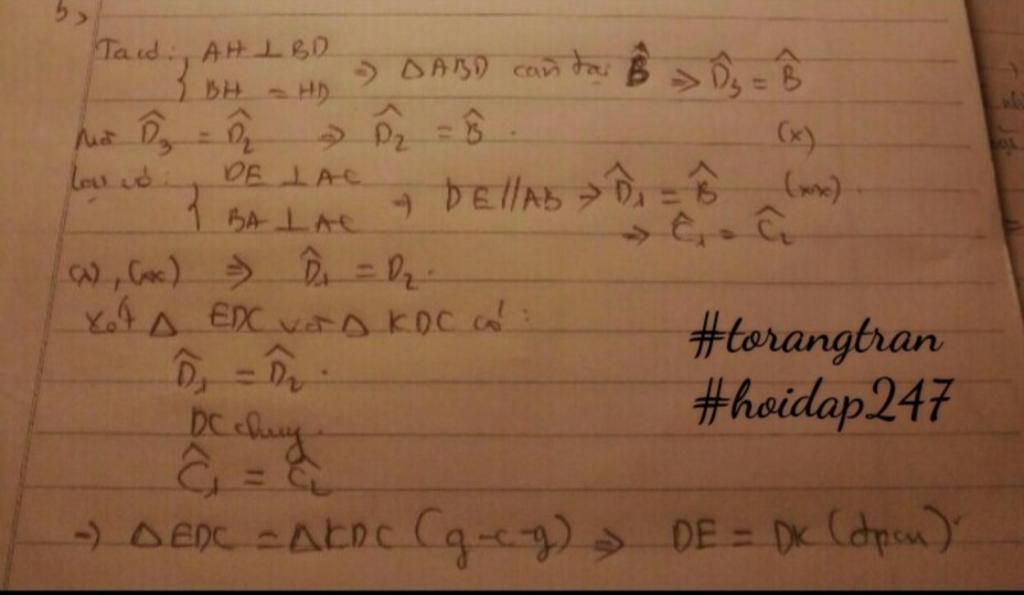 b,
Ta có: { AH ⊥ BD
BH = HD ⇒ ΔABD cân tại B̂ ⇒ D̂₃ = B̂
Mà D̂₃ = D̂₂ ⇒ D̂₂ = B̂ . (x)
Lại có: { DE ⊥ AC
BA ⊥ AC → DE // AB → D̂₁ = B̂ (xx).
⇒ Ĉ₁ = Ĉ₂
(x), (xx) ⇒ D̂₁ = D₂.
Xét Δ EDC với Δ KDC có:
D̂₁ = D̂₂ .
DC chung.
Ĉ₁ = Ĉ₂
→ ΔEDC = ΔKDC (g-c-g) ⇒ DE = DK (đpcm)
#torangtran
#hoidap247